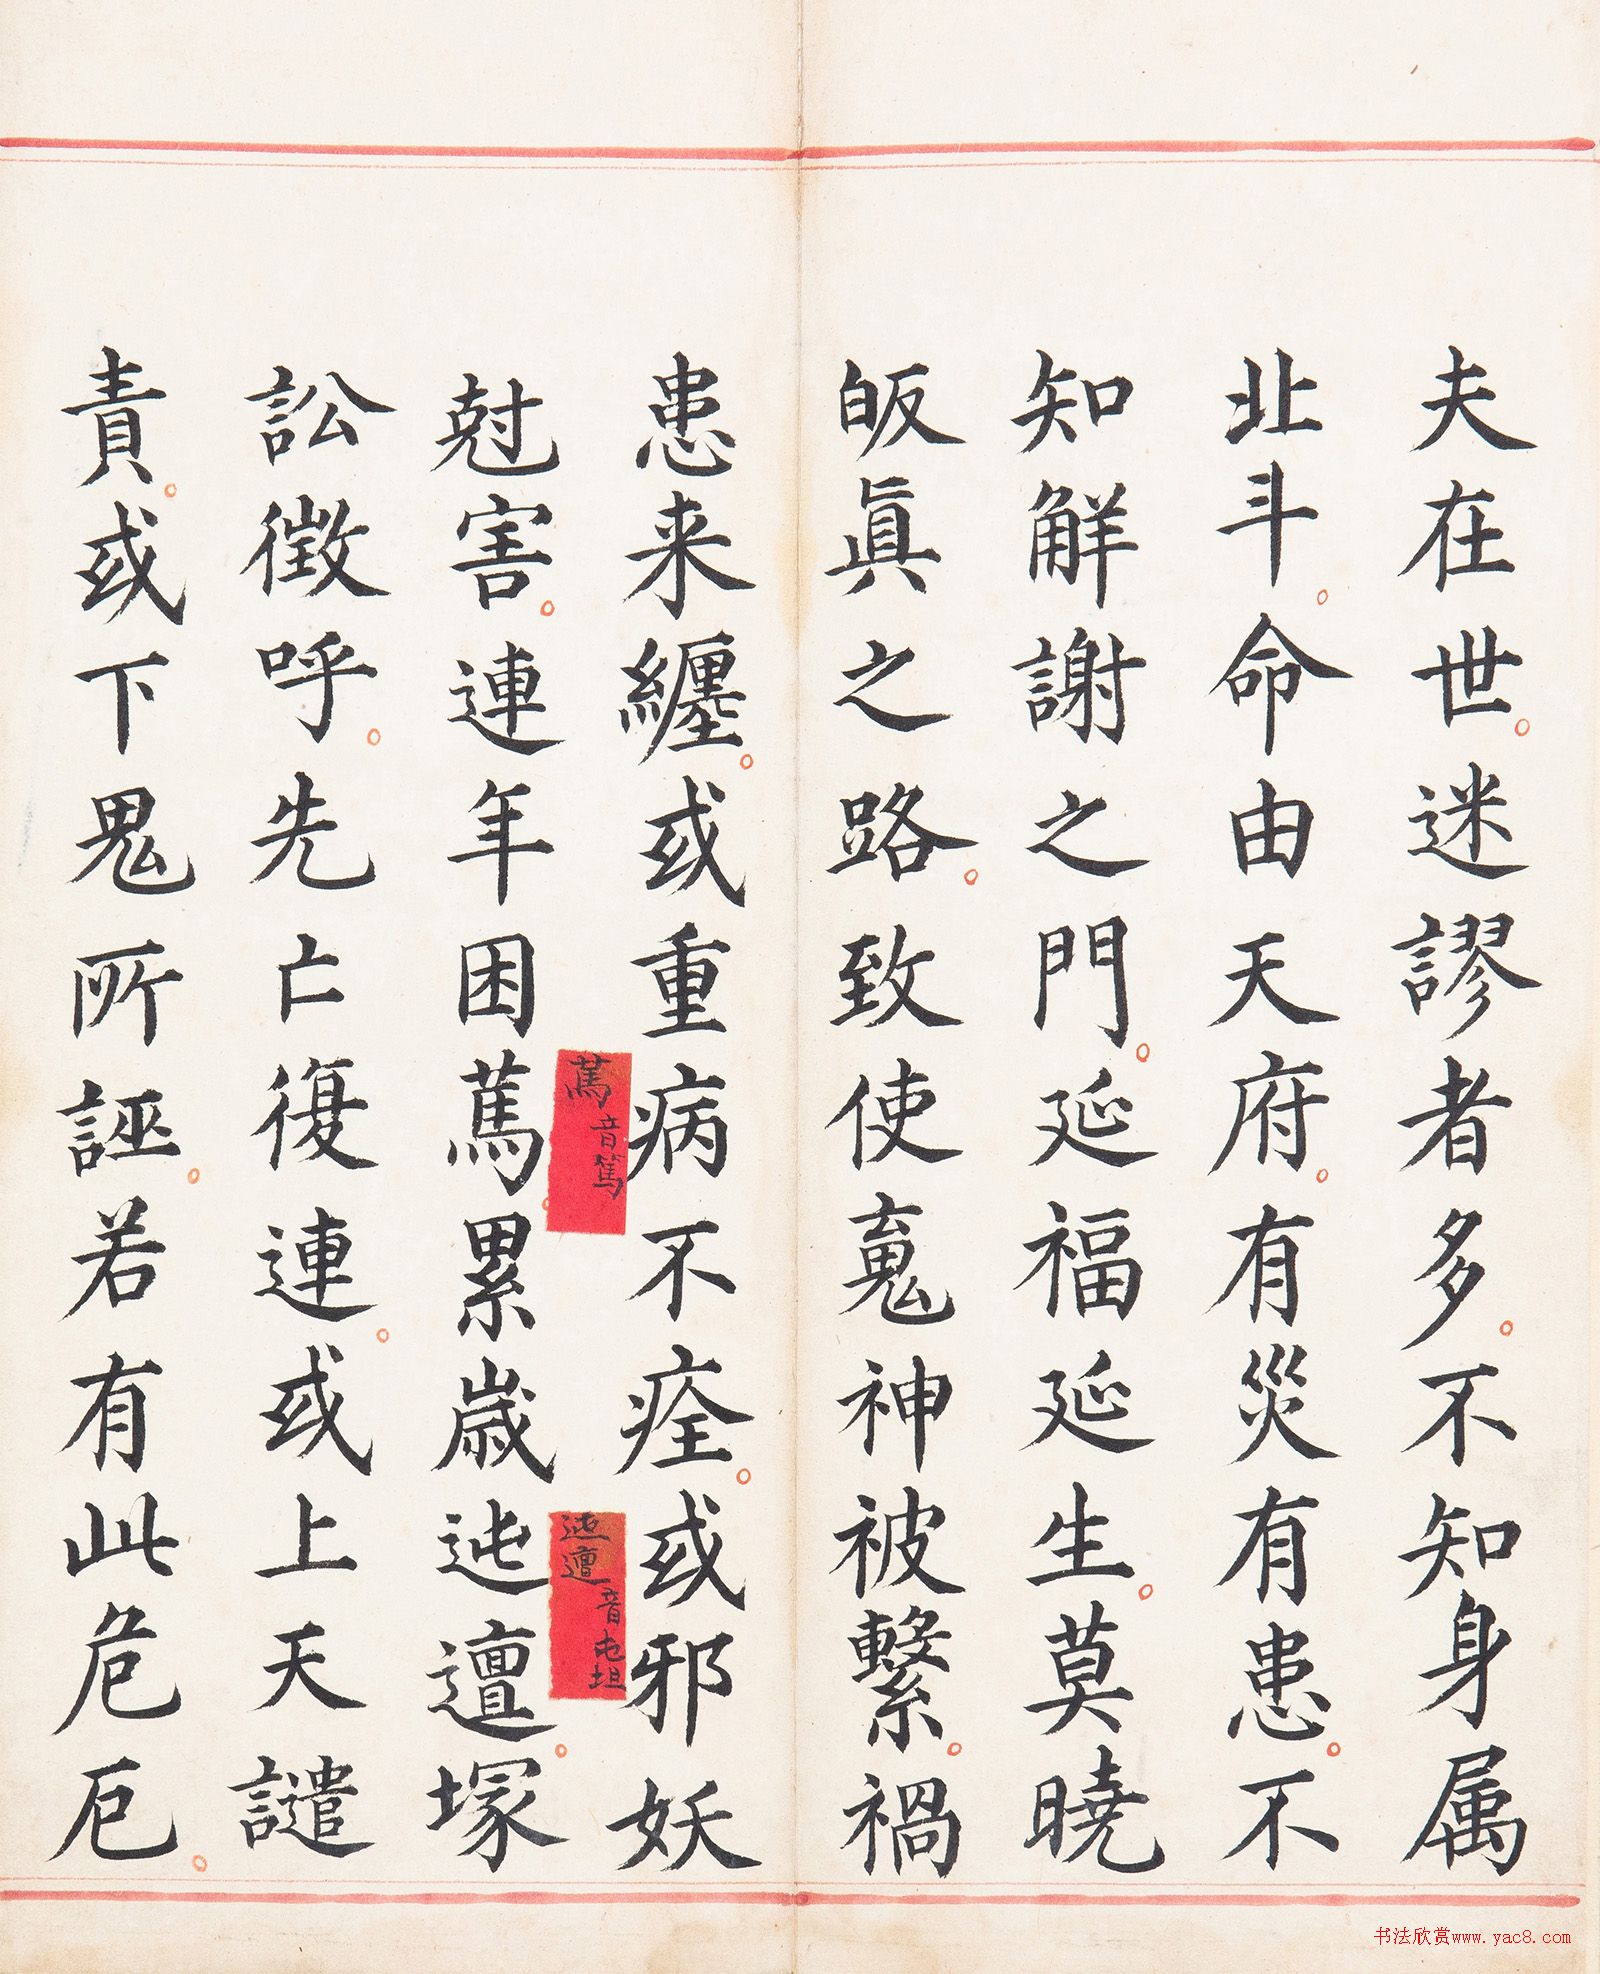 夫在世迷謬者多。不知身属
北斗。命由天府。有災有患。不
知解謝之門。延福延生。莫曉
皈眞之路。致使䰟神被繫。禍
患来纏。或重病不痊。或邪妖
尅害。連年困蔫。累歳迍邅。塚
訟徵呼。先亡復連。或上天譴
責。或下鬼所誣。若有此危厄。
蔫音篤
迍邅音屯坦
书法欣赏www.yac8.com